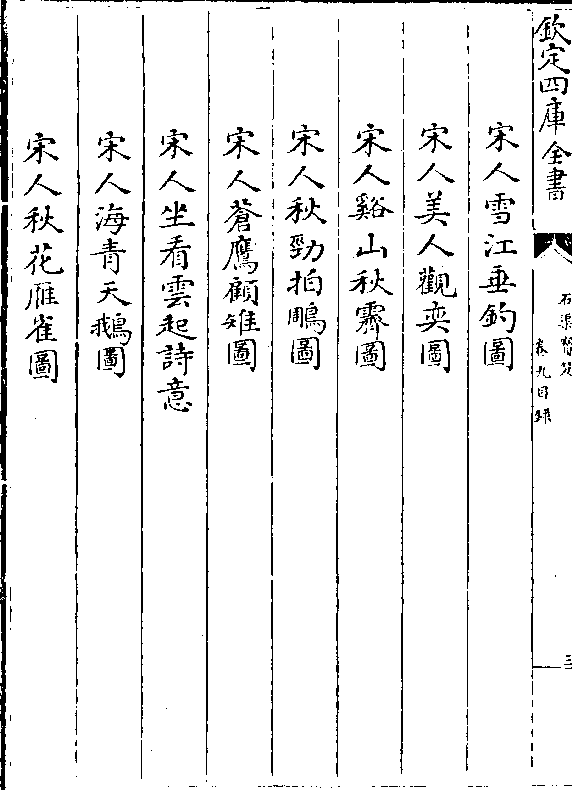 欽定四庫全書
石渠寶笈
卷九目錄
宋人雪江垂釣圖
宋人美人觀奕圖
宋人谿山秋霽圖
宋人秋勁拍鵰圖
宋人蒼鷹顧雉圖
宋人坐看雲起詩意
宋人海青天鵝圖
宋人秋花雁雀圖